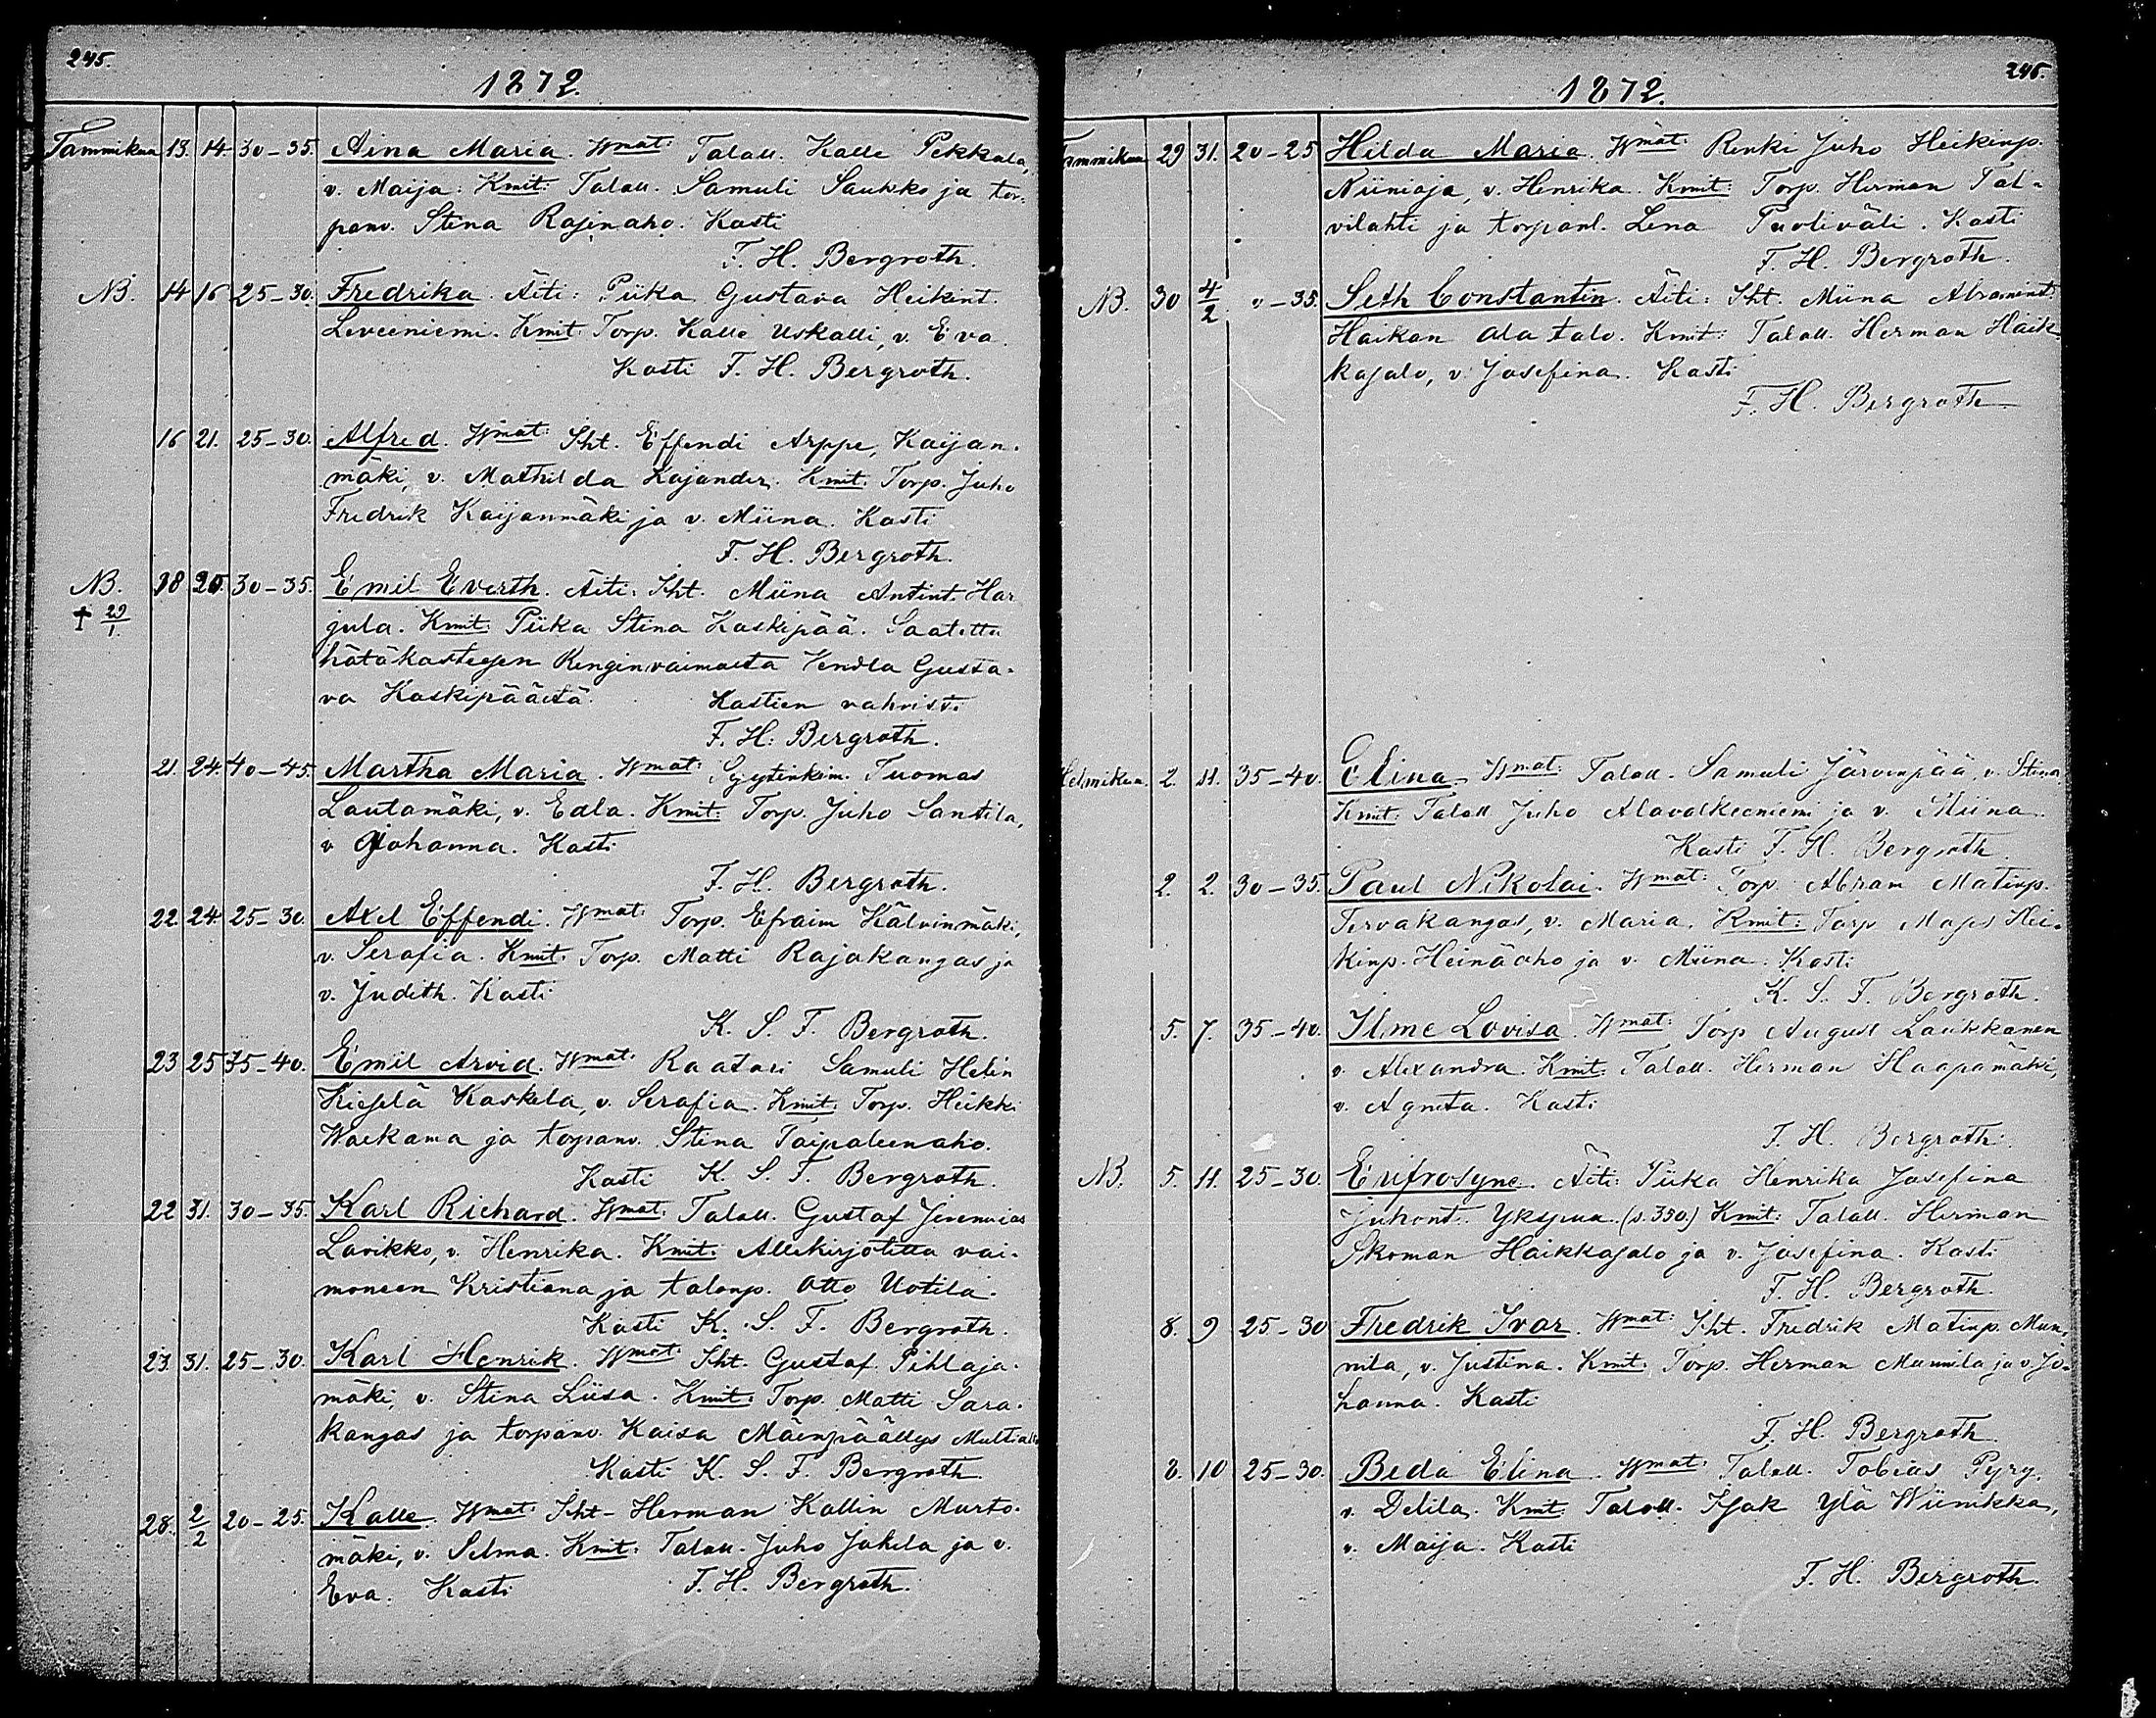 245.
1872.
Tammikuu 13. 14. 30-35. Aina Maria. Wmat: Talall. Kalle Pekkala,
v. Maija. Kmit: Talall. Samuli Saukko ja tor-
panv. Stena Rajinaho. Kasti
F. H. Bergroth.
NB. 14 16 25-30. Fredrika. Äiti: Piika Gustava Heikint.
Leveeniemi. Kmit: Torp. Kalle Uskalli, v. Eva.
Kasti F. H. Bergroth.
16 21. 25-30. Alfred. Wmat: Iht. Effendi Arppe, Kaijan-
mäki, v. Mathilda Kajander. Kmit: Torp. Juho
Fredrik Kaijanmäki ja v. Miina. Kasti
F. H. Bergroth.
NB. 18 30-35. Emil Everth. Äiti: Iht. Miina Antint. Har
† 29/1.
jula. Kmit: Piika Stina Kaskipää. Saatettu
hätäkasteesen Renginvaimolta Vendla Gusta-
va Kaskipäältä. Kastien vahvisti
F. H. Bergroth.
21. 24. 40-45. Martha Maria. Wmat: Tuomas
Lautamäki, v. Edla. Kmit: Torp. Juho Santila,
v. Johanna. Kasti
F. H. Bergroth.
22. 24 25-30. Axel Effendi. Wmat: Torp. Efraim Kälvinmäki,
v. Serafia. Kmit: Torp. Matti Rajakangas ja
v. Judith. Kasti
K. S. F. Bergroth.
23 25 35-40. Emil Arvid. Wmat: Raatari Samuli Helin
Kieselä Kaskela, v. Serafia. Kmit: Torp. Heikki
Waekama ja torpanv. Stena Taipaleenaho.
Kasti K. S. F. Bergroth.
22 31. 30-35. Karl Richard. Wmat: Talall. Gustaf Jeremias
Lavikko, v. Henrika. Kmit: Allekirjotettu vai-
moneen Kristiana ja talonp. Otto Uotila.
Kasti K. S. F. Bergroth.
23. 31. 25-30. Karl Henrik. Wmat: Iht. Gustaf Pihlaja-
mäki, v. Stina Liisa. Kmit: Torp. Matti Sara-
kangas ja torpanv. Kaisa Mäenpäällys
Kasti K. S. F. Bergroth
28. 2/2 20-25. Kalle. Wmat: Iht. Herman Kallin Murto-
mäki, v. Selma. Kmit: Talall. Juho Jokela ja v.
Eva. Kasti F. H. Bergroth.
246.
1872.
Tammikuu 29 31. 20-25 Hilda Maria. Wmat: Renki Juho Heikinp.
Niinioja, v. Henrika. Kmit: Torp. Herman Tal-
vilahti ja torpanl. Lena Puoliväli. Kasti
F. H. Bergroth.
NB. 30 4/2 0-35. Seth Constantin. Äiti: Iht. Miina Abramint.
Haikan ala talo. Kmit: Talall. Herman Haik-
kasalo, v. Josefina. Kasti
F. H. Bergroth
Helmikuu. 2. 11. 35-40. Elina. Wmat: Talall. Samuli Järvenpää, v. Stina
Kmit: Talall Juho Alavalkeeniemi ja v. Miina.
Kasti F. H. Bergroth.
2. 2. 30-35. Paul Nikolai. Wmat: Torp. Abram Matinp.
Tervakangas, v. Maria. Kmit: Torp. Hei-
kinp. Heinäaho ja v. Miina. Kasti
K. S. F. Bergroth.
5. 7. 35-40. Ilme Lovisa. Wmat: Torp August Laukkanen
v. Alexandra. Kmit: Talall. Herman Haapamäki,
v. Agneta. Kasti
F. H. Bergroth.
NB. 5. 11. 25-30. Eufrosyne. Äiti: Piika Henrika Josefina
Juhont. Ykspuu. (s. 350.) Kmit: Talall. Herman
Ikoman Haikkasalo ja v. Josefina. Kasti
F. H. Bergroth.
8. 9 25-30 Fredrik Ivar. Wmat: Iht. Fredrik Matinp. Mun-
nila, v. Justina. Kmit: Torp. Herman Munnila ja v. Jo-
hanna. Kasti
F. H. Bergroth
8. 10 25-30. Beda Elina. Wmat: Talall. Tobias Pyry,
v. Delila. Kmit: Talall. Isak Ylä Wiinikka,
v. Maija. Kasti
F. H. Bergroth.